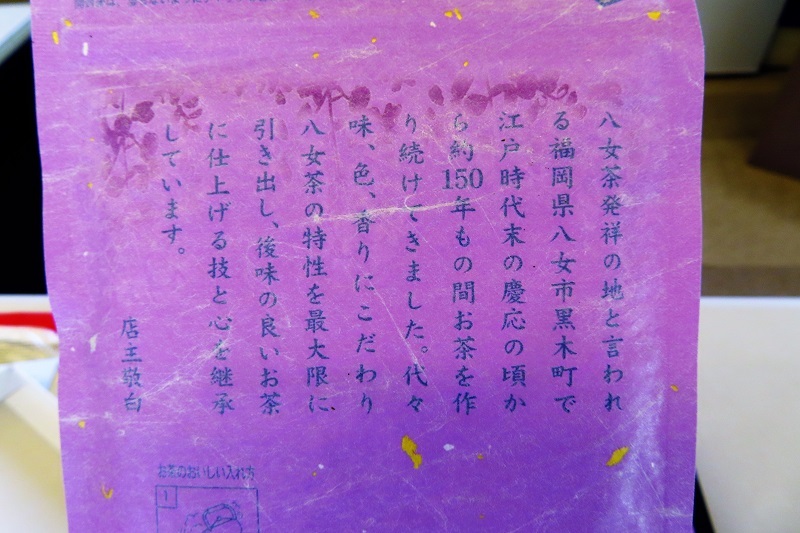 八女茶発祥の地と言われ
る福岡県八女市黒木町で
江戸時代末の慶応の頃か
ら約150年もの間お茶を作
り続けてきました。代々
味、色、香りにこだわり
八女茶の特性を最大限に、
引き出し、後味の良いお茶
に仕上げる技と心を継承
しています。
店主敬白
お茶のおいしい入れ方
1